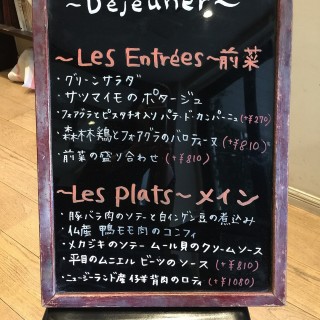 ~Déjeuner~
~Les Entrées~前菜
・グリーンサラダ
・サツマイモのポタージュ
・フォアグラとピスタチオ入りパテ・ド・カンパーニュ(+¥270)
・森林鶏とフォアグラのバロティーヌ(+¥810)
・前菜の盛り合わせ(+¥810)
~Les Plats~メイン
・豚バラ肉のソテーと白インゲン豆の煮込み
・仏産 鴨モモ肉のコンフィ
・メカジキのソテー ムール貝のクリームソース
・平目のムニエル ビーツのソース(+¥810)
・ニュージーランド産 仔羊背肉のロティ(+¥1080)